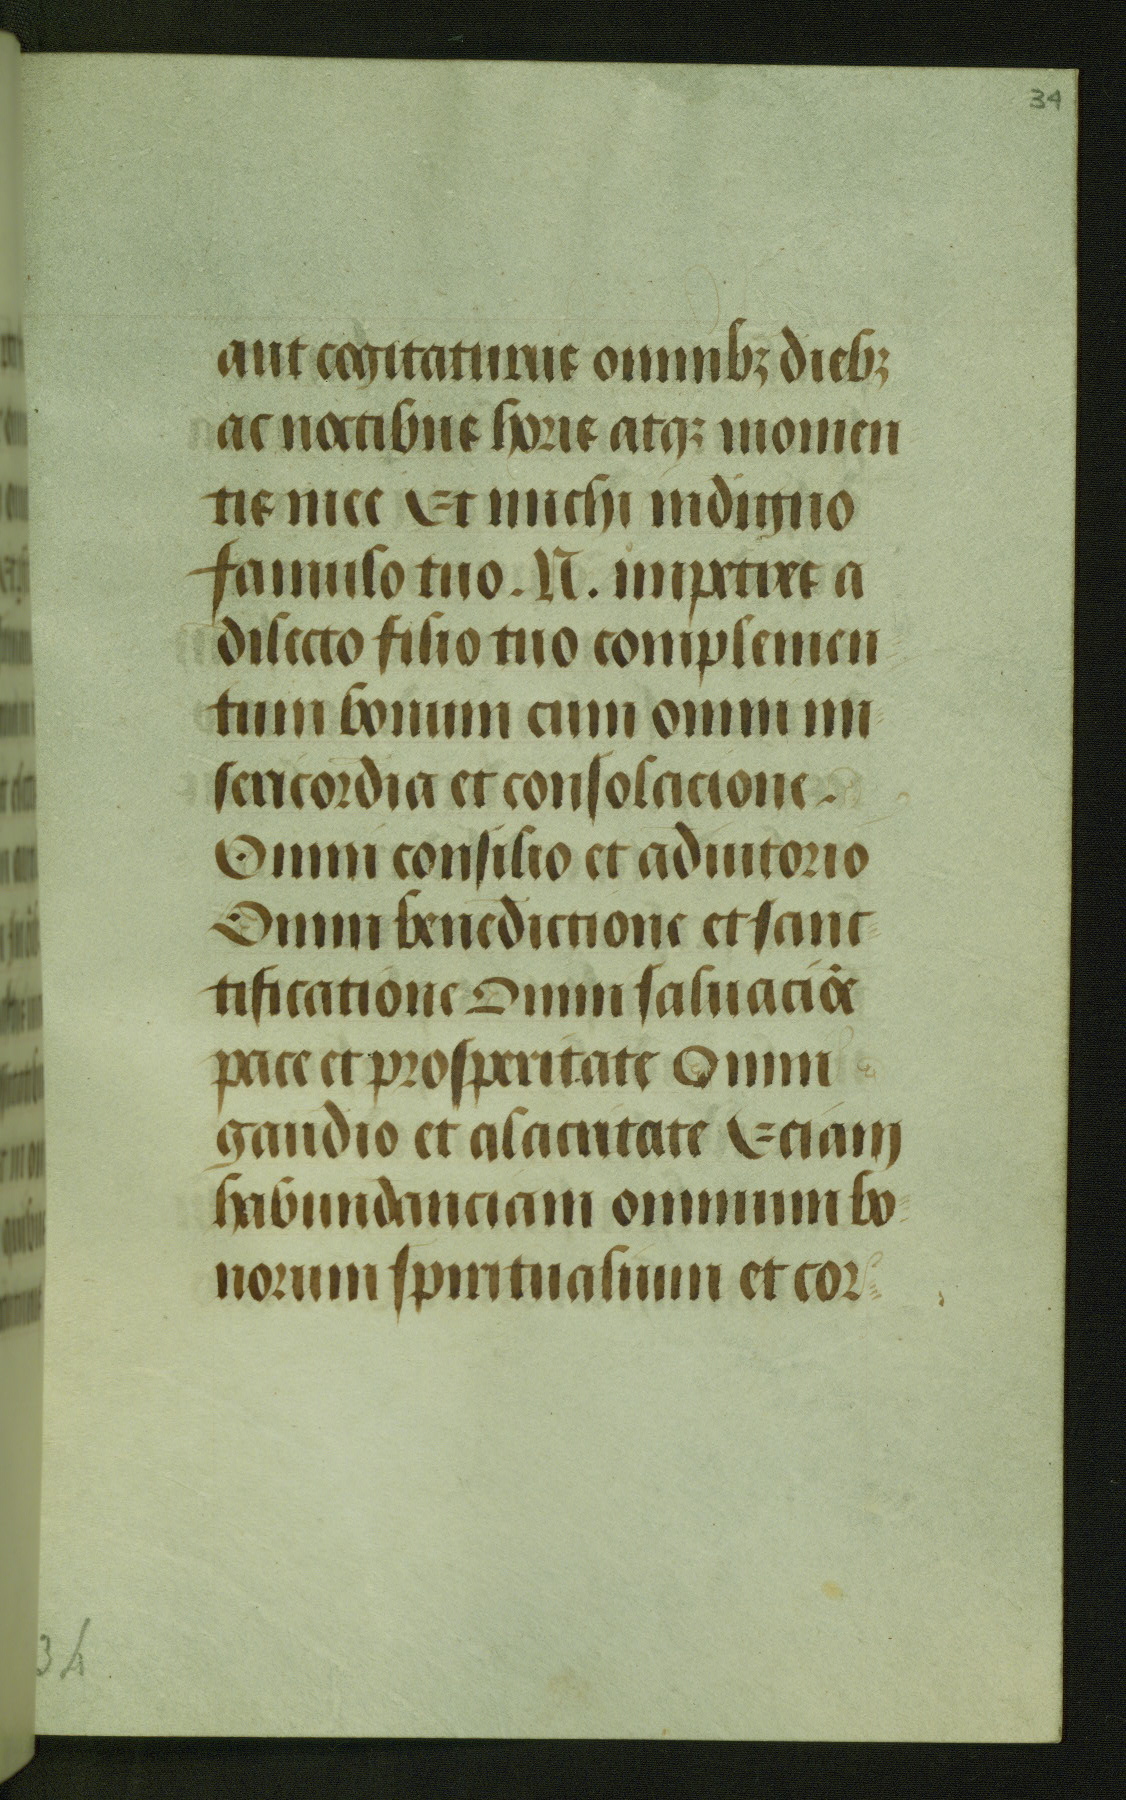 34
aut cogitaturus omnibꝫ diebꝫ
ac noctibus horis atqꝫ momen
tis mee Et michi indigno
famulo tuo. N. impetres a
dilecto filio tuo complemen
tum bonum cum omni mi
sericordia et consolacione.
Omni consilio et adiutorio
Omni benedictione et sanc
tificatione Omni saluaciōe
pace et prosperitate Omni
gaudio et alacritate Eciam
habundanciam omnium bo
norum spiritualium et cor
34